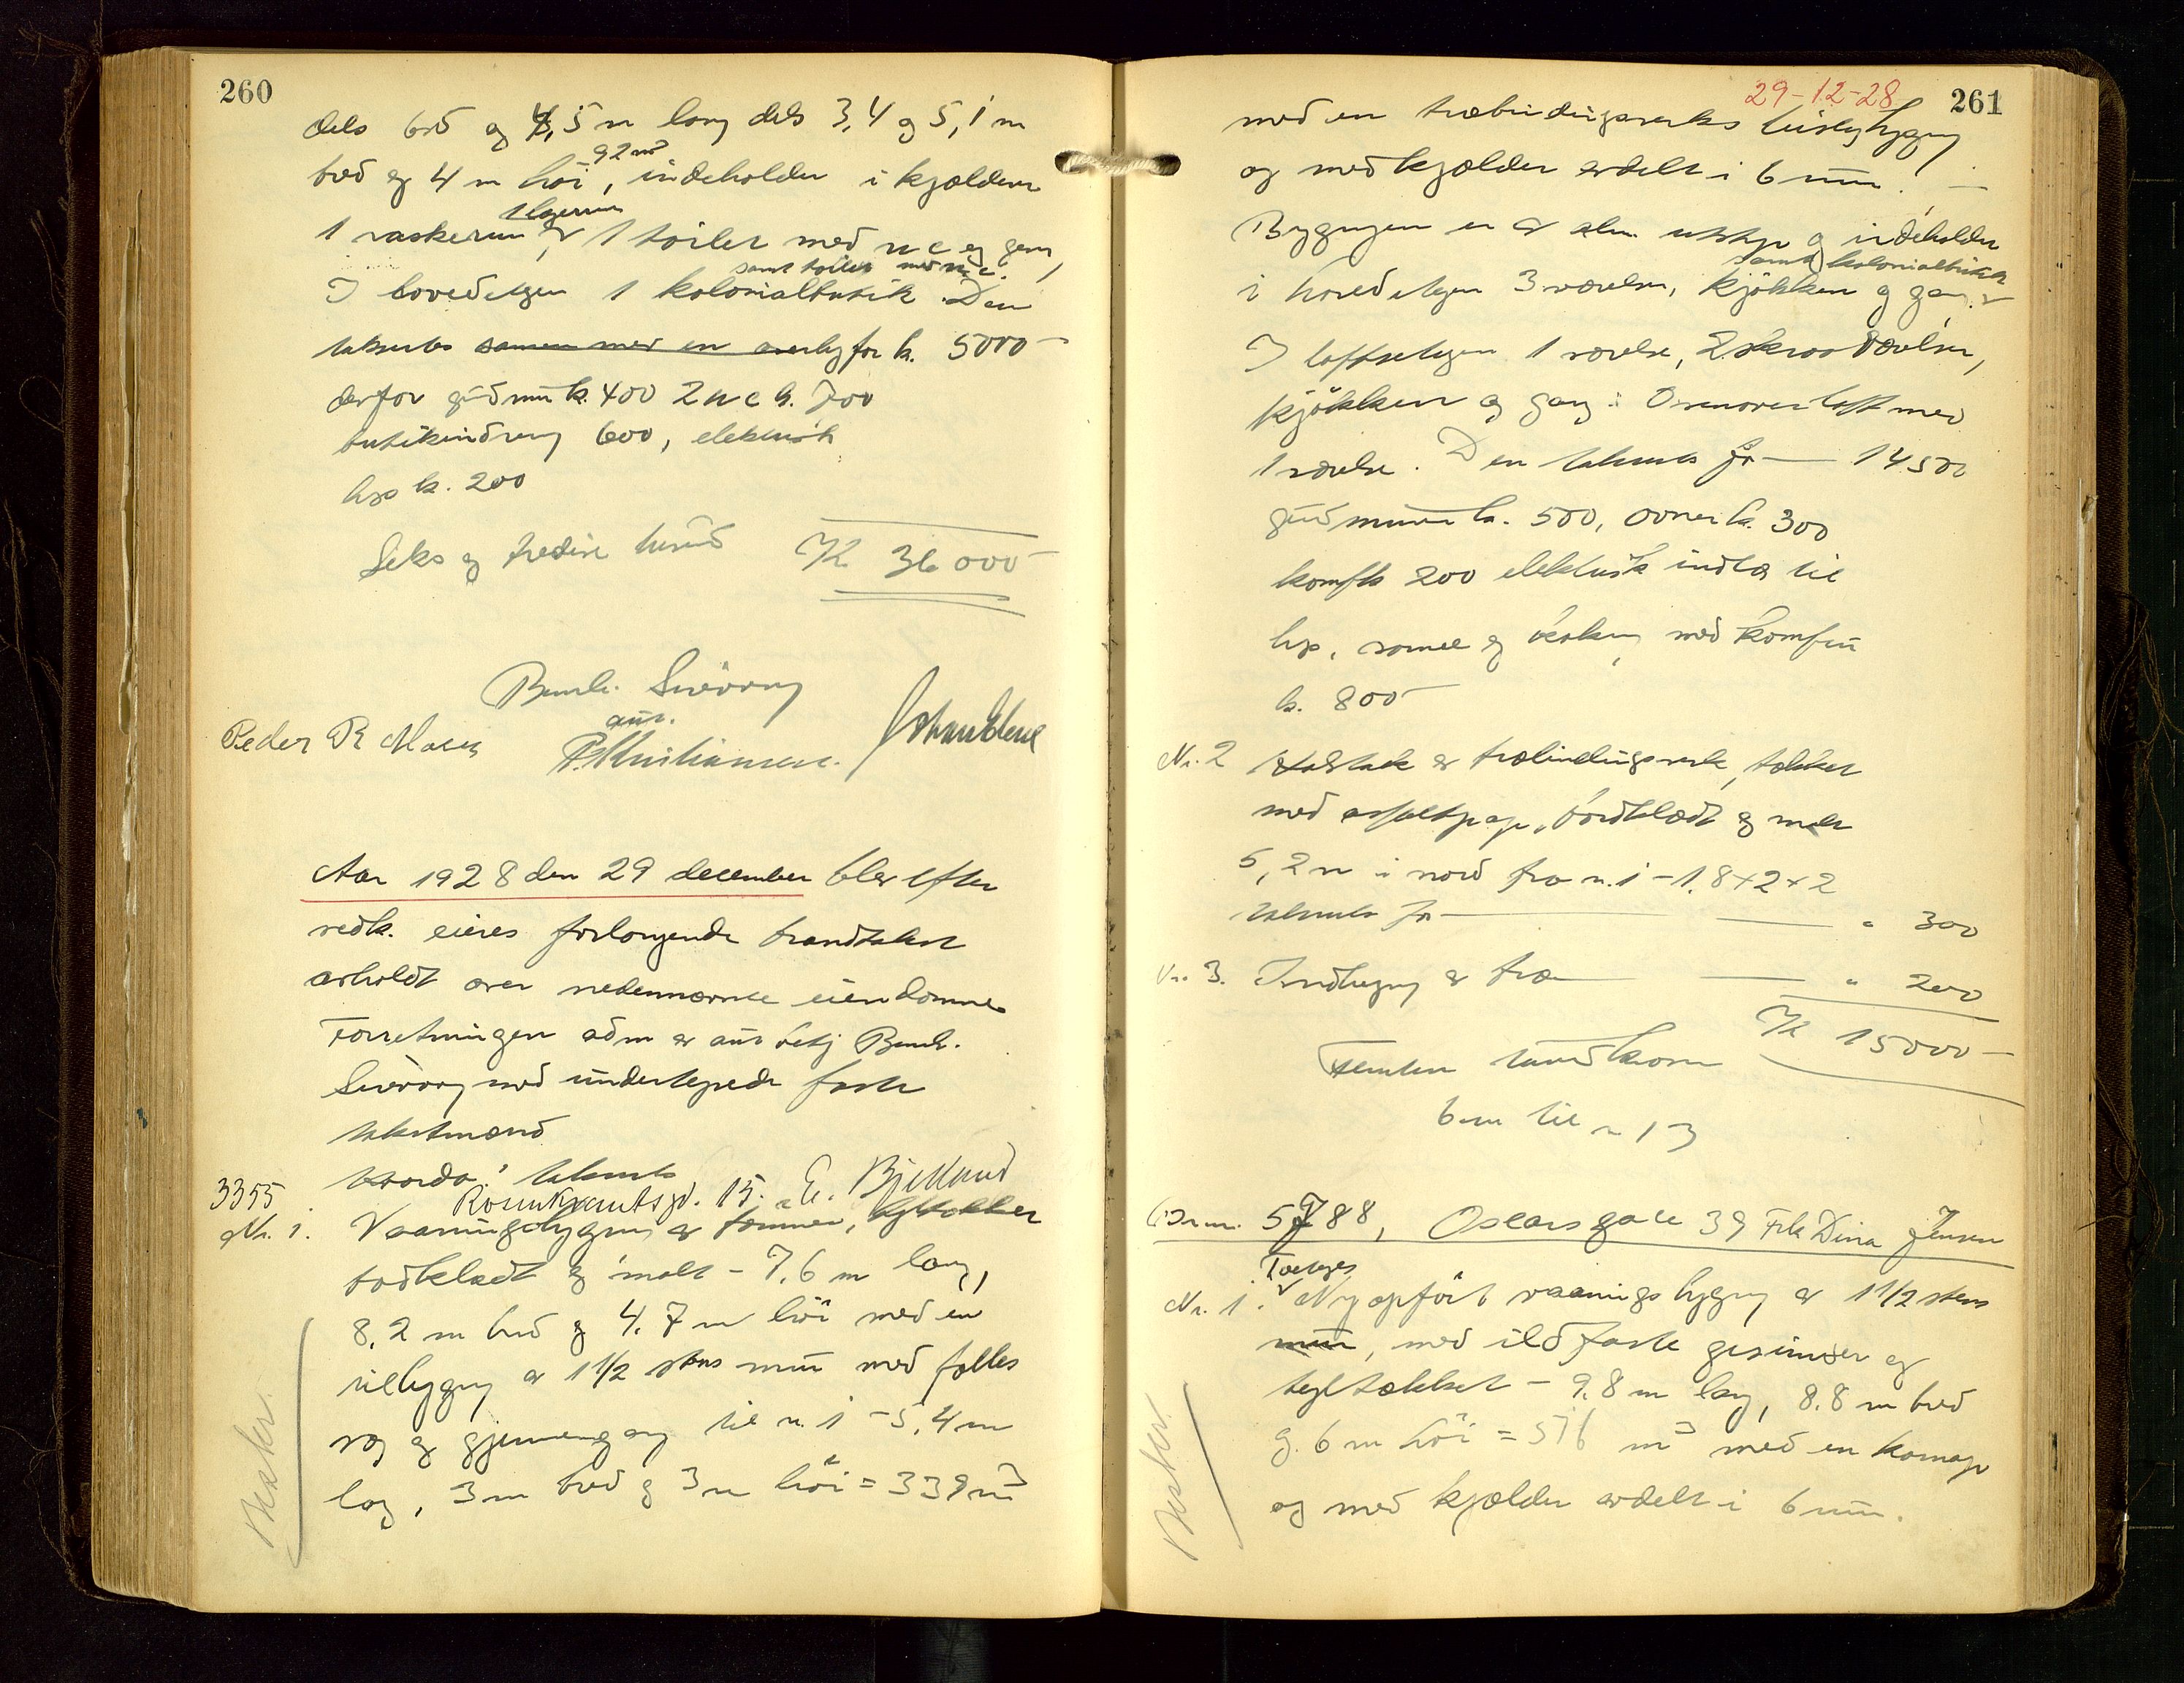 260
dels bred og 4,5 m lang dels 3,4 og 5,1 m
bred og 4 m höi, 92 m³ indeholder i kjælderen
1 vaskerum, 1 lagerrum og 1 toilet med w c og gang,
I hovedetagen 1 kolonialbutik samt toilet med w.c. Den
takseres sammen med en overbyg for kr. 5000 -
derfor grundmur kr. 400 2 w c kr. 700
butikindredning 600, elektrisk
lys kr. 200
Seks og tredive tusind Kr 36 000 -
Bernh. Sivövaag
aut.
Peder R Moen
P. Kristiansen.
Aar 1928 den 29 december blev efter
vedk. eieres forlangende brandtakst
avholdt over nedennævnte eiendomme
Forretningen adm av aut betj Bernh.
Sivövaag med undertegnede faste
takstmænd
hvorda: takserets
3355 Rosenkrantsgd. 15. E. Bjelland
Nr. 1. Vaaningsbygning av tømmer, tegltækket
bordklædt og malt - 7,6 m lang,
8,2 m bred og 4,7 m höi med en
tilbygning av 1 1/2 stens mur med fælles
væg og gjennemgang til nr. 1 - 5,4 m
lang, 3 m bred og 3 m höi = 339 m³
Besktr.
29-12-28 261
med en træbindingsverks bislagbygning
og med kjælder avdelt i 6 rum. -
Bygningen er av alm. utstyr og indeholder
i hovedetagen 3 værelser, kjökken og gang. samt kolonialbutik
I loftsetagen 1 værelse, 2 skraaværelser,
kjökken og gang. Ovenover loft med
1 værelse. Den takseres for - 14500
grundmuren kr. 500, ovner kr. 300
komfyr 200 elektrisk indlæg til
lys, varme og kokning med komfur
kr. 800 -
Nr. 2 Stakit av træbindingsverk, tækket
med asfaltpap, bordklædt og malt
5,2 m i nord fra nr. 1 - 1,8 x 2 x 2
takseres for - " 300
Nr. 3. Indhegning av træ - " 200
Kr 15000 -
Femten tusind kroner
6 m til nr 13
Br.nr. 5788, Oscarsgate 39 Frk Dina Jensen
Nr. 1. Toetages Nyopfört vaaningsbygning av 1 1/2 stens
mur, med ildfaste gesimser og
tegltækket - 9,8 m lang, 8,8 m bred
og 6 m höi = 576 m³ med en karnap
og med kjælder avdelt i 6 rum.
Besktr.